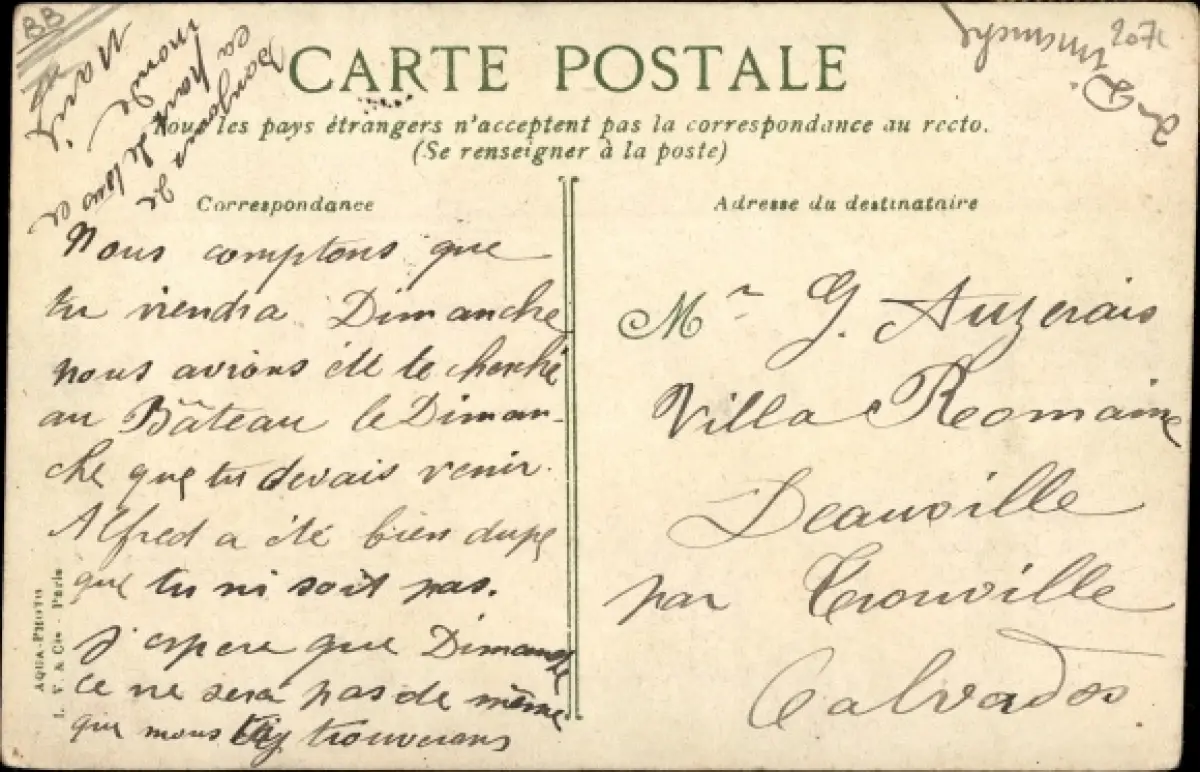 BB
Bonjour de
la part de tous ce
monde
Marie
2071
CARTE POSTALE
Tous les pays étrangers n'acceptent pas la correspondance au recto.
(Se renseigner à la poste)
Correspondance
Nous comptons que
tu viendra Dimanche
nous avions été te cherché
au Bâteau le Diman-
che que tu devais venir.
Alfred a été bien dupe
que tu ni soit pas.
j'espere que Dimanche
ce ne sera pas de même
que nous ty trouverons
Adresse du destinataire
Mr G. Auzerais
Villa Romaine
Deauville
par Trouville
Calvados.
AQUA-PHOTO
L. V. & Cie - Paris